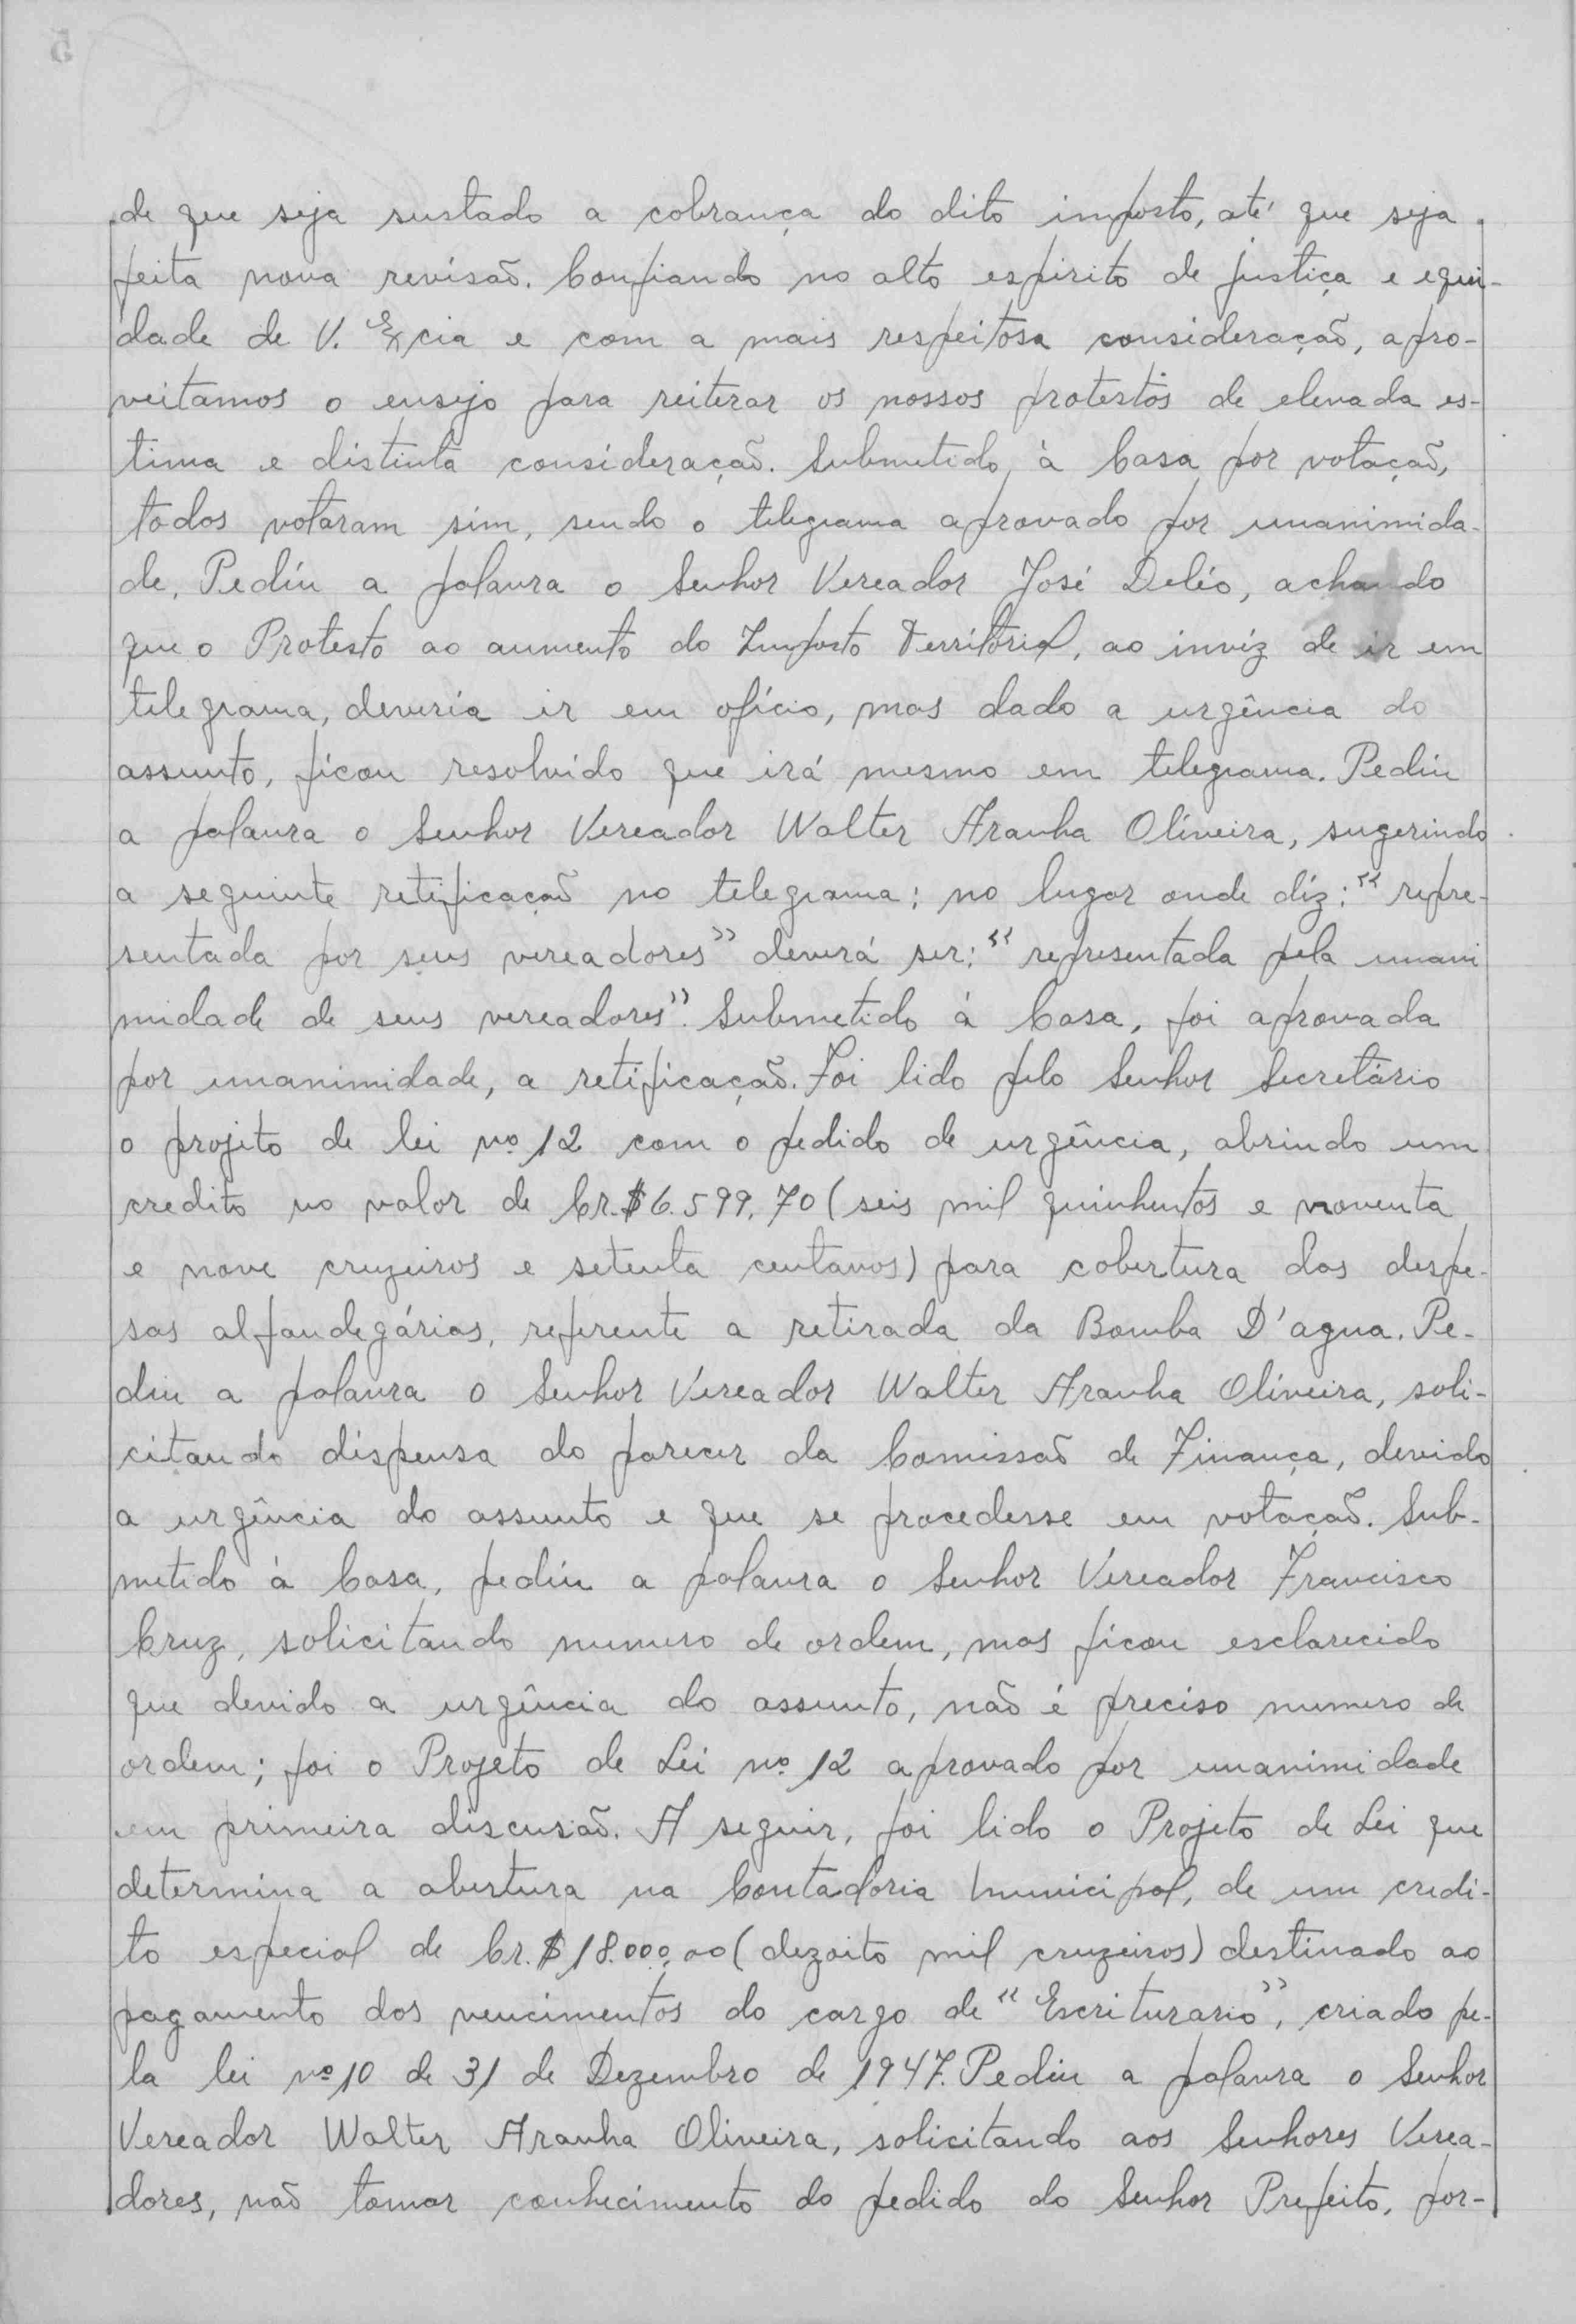 de que seja sustado a cobrança do dito imposto, até que seja
feita nova revisão. Confiando no alto espirito de justiça e equi-
dade de V. Excia e com a mais respeitosa consideração, apro-
veitamos o ensejo para reiterar os nossos protestos de elevada es-
tima e distinta consideração. Submetido, à Casa por votação,
todos votaram sim, sendo o telegrama aprovado por unanimida-
de. Pediu a palavra o Senhor Vereador José Deléo, achando
que o Protesto ao aumento do Imposto Territórial, ao invíz de ir em
telegrama, deveria ir em ofício, mas dado a urgência do
assunto, ficou resolvido que irá mesmo em telegrama. Pediu
a palavra o Senhor Vereador Walter Aranha Oliveira, sugerindo
a seguinte retificação no telegrama: no lugar onde díz: "repre-
sentada por seus vereadores" deverá ser: "representada pela unani
midade de seus vereadores". Submetido à Casa, foi aprovada
por unanimidade, a retificação. Foi lido pelo Senhor Secretário
o projeto de lei nº 12 com o pedido de urgência, abrindo um
credito no valor de Cr.$6.599,70 (seis mil quinhentos e noventa
e nove cruzeiros e setenta centavos) para cobertura das despe-
sas alfandegárias, referente a retirada da Bomba D'agua. Pe-
diu a palavra o Senhor Vereador Walter Aranha Oliveira, soli-
citando dispensa do parecer da Comissão de Finança, devido
a urgência do assunto e que se procedesse em votação. Sub-
metido à Casa, pediu a palavra o Senhor Vereador Francisco
Cruz, solicitando numero de ordem, mas ficou esclarecido
que devido a urgência do assunto, não é preciso numero de
ordem; foi o Projeto de Lei nº 12 aprovado por unanimidade
em primeira discusão. A seguir, foi lido o Projeto de Lei que
determina a abertura na Contadoria Municipal, de um credi-
to especial de Cr.$18.000,00 (dezoito mil cruzeiros) destinado ao
pagamento dos vencimentos do cargo de "Escriturario", criado pe-
la lei nº 10 de 31 de Dezembro de 1947. Pediu a palavra o Senhor
Vereador Walter Aranha Oliveira, solicitando aos Senhores Verea-
dores, não tomar conhecimento do pedido do Senhor Prefeito, por-